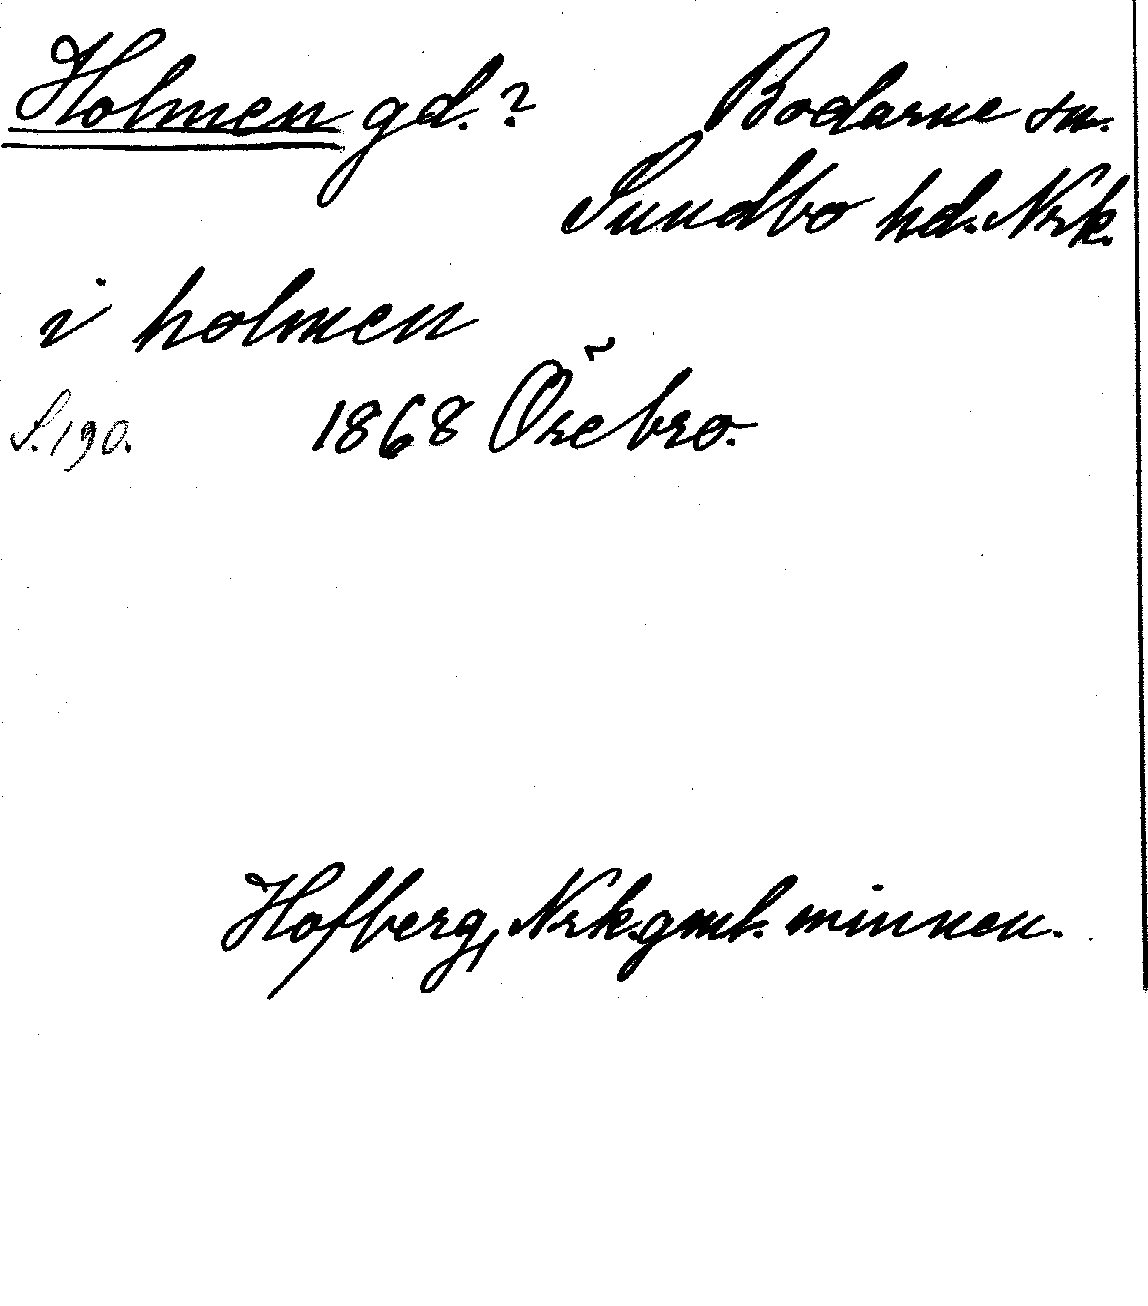 Holmen gd.? Bodarne sn.
Sundbo hd. Nrk.
i holmen
S. 190. 1868 Örebro.
Hofberg, Nrk. gml. minnen.